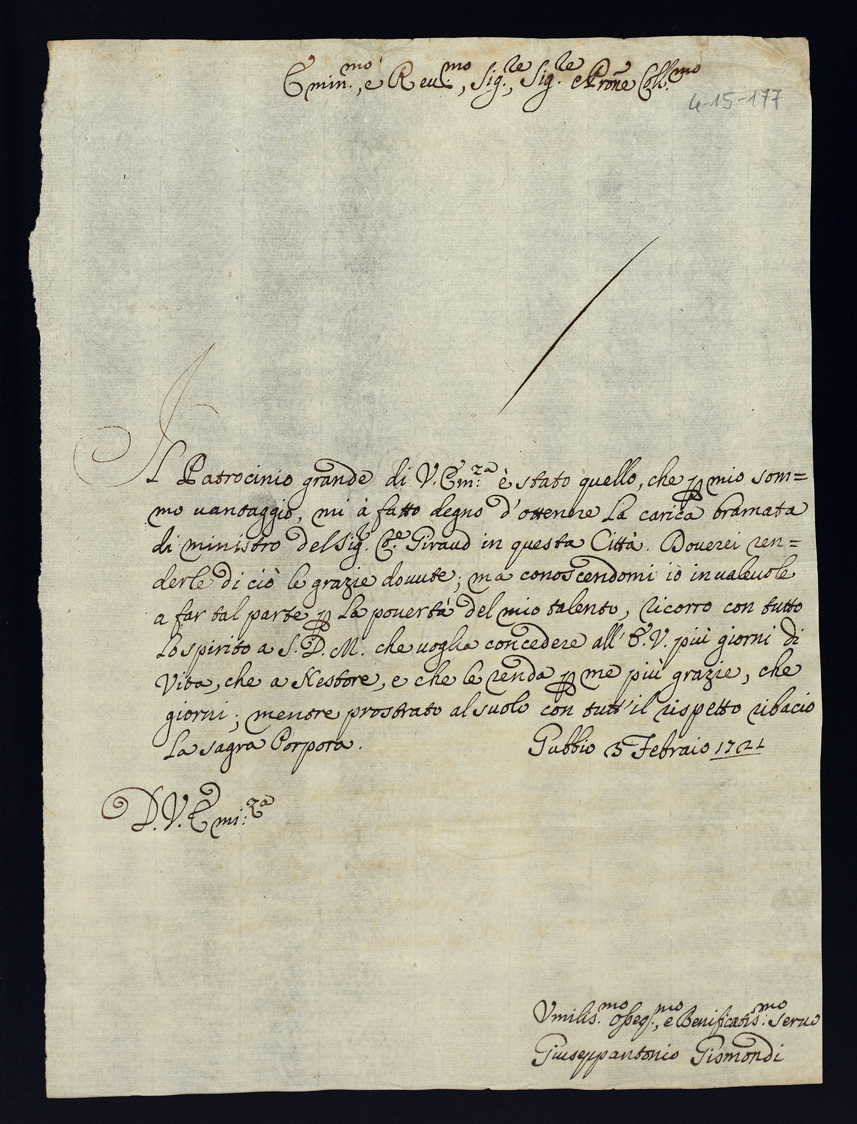 Emin.mo, e Reu.mo, Sig.re, Sig.re e Prone Coll.mo
4-15-177
Il Patrocinio grande di V. Em.za è stato quello, che p mio som=
mo uantaggio, mi à fatto degno d'ottenere la carica bramata
di ministro del Sig. Co.e Giraud in questa Città. Douerei ren=
derle di ciò le grazie douute; ma conoscendomi io inualeuole
a far tal parte p la pouertà del mio talento, ricorro con tutto
lo spirito a S. D. M. che uoglia concedere all' E. V. più giorni di
Vita, che a Nestore, e che le renda p me più grazie, che
giorni; mentre prostrato al suolo con tutt'il rispetto ribacio
la sagra Porpora.
Gubbio 3 Febraio 1721
D. V. Emi:za
Vmilis.mo Osseq.mo, e Benificatis.mo seruo
Giuseppantonio Gismondi